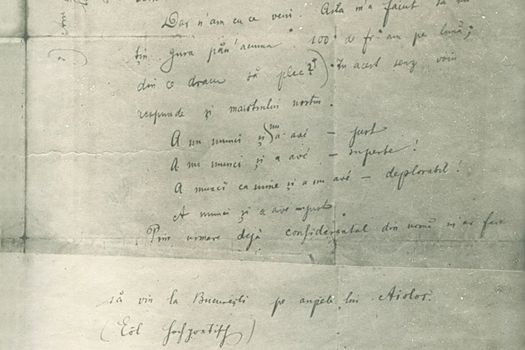 Dar n'am cu ce veni. Asta m'a făcut să nu
țin gura păn'acuma. 100 de fr am pe lună;
din ce dracu să plec? În acest sens voiu
respunde și maistrului nostru.
A nu munci și nu a avé – just
A nu munci și a avé – superbe!
A munci ca mine și a nu avé – deplorabil!
A munci și a ave – just.
Prin urmare dejà confidențial din urmă m'ar face
să vin la București pe aripele lui Aiolos.